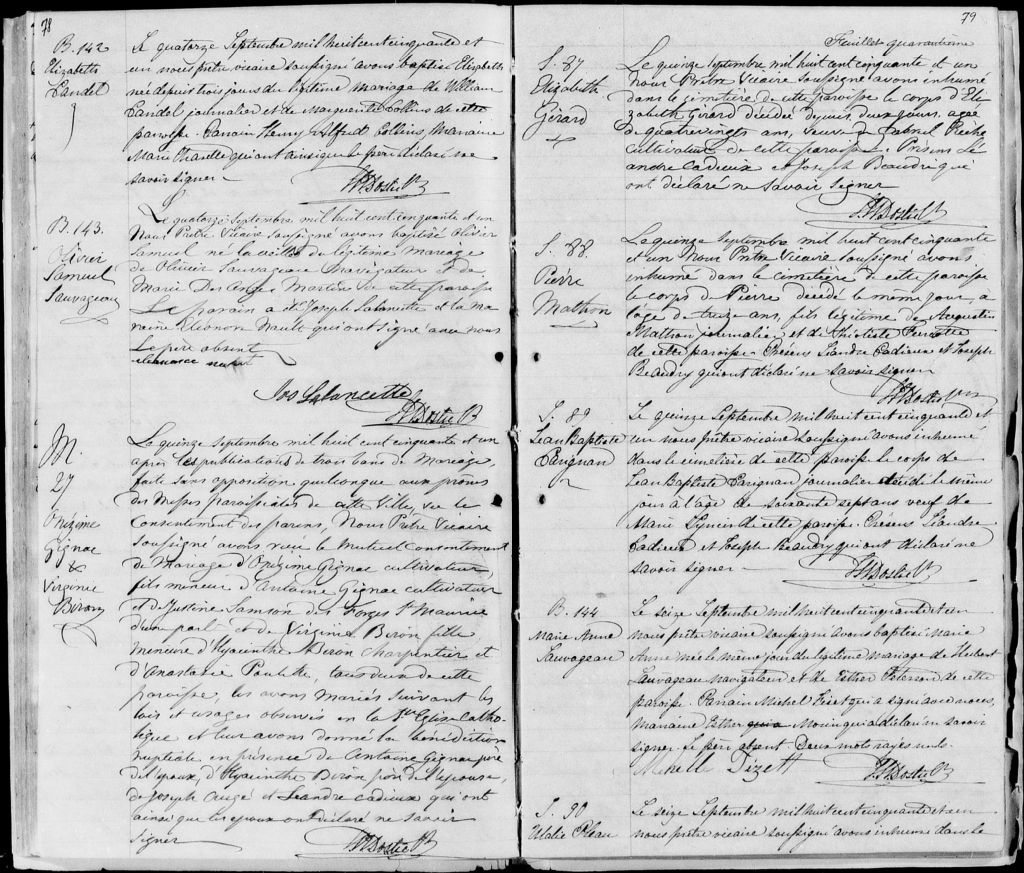 78
B. 142
Elizabeth
Landel
Le quatorze Septembre mil huit cent cinquante et
un nous prêtre vicaire soussigné avons baptisé Elizabeth
née depuis trois jours du légitime mariage de William
Landel journalier et de Marguerite Collins de cette
paroisse. Parrain Henry Alfred Collins, Marraine
Marie qui ont ainsi que le père déclaré ne
savoir signer
B. 143.
Olivier
Samuel
Sauvageau
Le quatorze Septembre mil huit cent cinquante et un
Nous Prêtre Vicaire soussigné avons baptisé Olivier
Samuel né la veille du légitime mariage
de Olivier Sauvageau Navigateur et de
Marie Des Anges Martin de cette paroisse
Le parain a été Joseph Lalancette et la ma
raine Eléonore Nault qui ont signé avec nous
Le père absent
eleonore
Jos Lalancette
M.
27
Onézime
Gignac
&
Virginie
Biron
Le quinze septembre mil huit cent cinquante et un
après les publications de trois bans de Mariage,
faite sans opposition quelconque aux prônes
des Messes paroissiales de cette Ville, vu le
Consentement des parens, Nous Prêtre Vicaire
soussigné avons reçu le Mutuel Consentement
de Mariage d'Onézime Gignac cultivateur,
fils mineur d'Antoine Gignac cultivateur
et de Justine Samson des Forges St Maurice
d'une part et de Virginie Biron fille
mineure d'Hyacinthe Biron Charpentier et
d'Anastasie Paulette, tous deux de cette
paroisse, les avons Mariés suivant les
lois et usages observés en la Ste Eglise Catho-
lique et leur avons donné la bénédiction
nuptiale en présence de Antoine Gignac père
de l'époux, d'Hyacinthe Biron père de l'épouse,
de Joseph Augé et Léandre Cadieux qui ont
ainsi que les époux ont déclaré ne savoir
signer
79
Feuillet quarantième
S. 87
Elizabeth
Gérard
Le quinze septembre mil huit cent cinquante et un
Nous Prêtre Vicaire soussigné avons inhumé
dans le cimetière de cette paroisse le corps d'Eli
zabeth Gérard décédée depuis deux jours, agée
de quatrevingts ans, veuve de Gabriel
cultivateur de cette paroisse. Présens Lé
andre Cadieux et Joseph Beaudri qui
ont déclaré ne savoir signer
S. 88.
Pierre
Mathon
Le quinze Septembre mil huit cent cinquante
et un Nous Prêtre Vicaire soussigné avons
inhumé dans le cimetière de cette paroisse
le corps de Pierre décédé le même jour, à
l'age de treize ans, fils légitime de Augustin
Mathon journalier et de Théotiste
de cette paroisse. Présens Léandre Cadieux et Joseph
Beaudry qui ont déclaré ne savoir signer
S. 89
Jean Baptiste
Parignan
Le quinze Septembre mil huit cent cinquante et
un nous prêtre vicaire soussigné avons inhumé
dans le cimetière de cette paroisse le corps de
Jean Baptiste Parignan journalier décédé le même
jour à l'âge de soixante sept ans veuf de
Marie de cette paroisse. Présens Léandre
Cadieux et Joseph Beaudry qui ont déclaré ne
savoir signer
B. 144
Marie Anne
Sauvageau
Le seize Septembre mil huit cent cinquante et un
nous prêtre vicaire soussigné avons baptisé Marie
Anne née le même jour du légitime mariage de Hubert
Sauvageau navigateur et de Esther Peterson de cette
paroisse. Parrain Michel qui a signé avec nous,
Marraine Esther qui a déclaré ne savoir
signer. Le père absent. Deux mots rayés nuls.
S. 90
Le seize Septembre mil huit cent cinquante et un
nous prêtre vicaire soussigné avons inhumé dans le